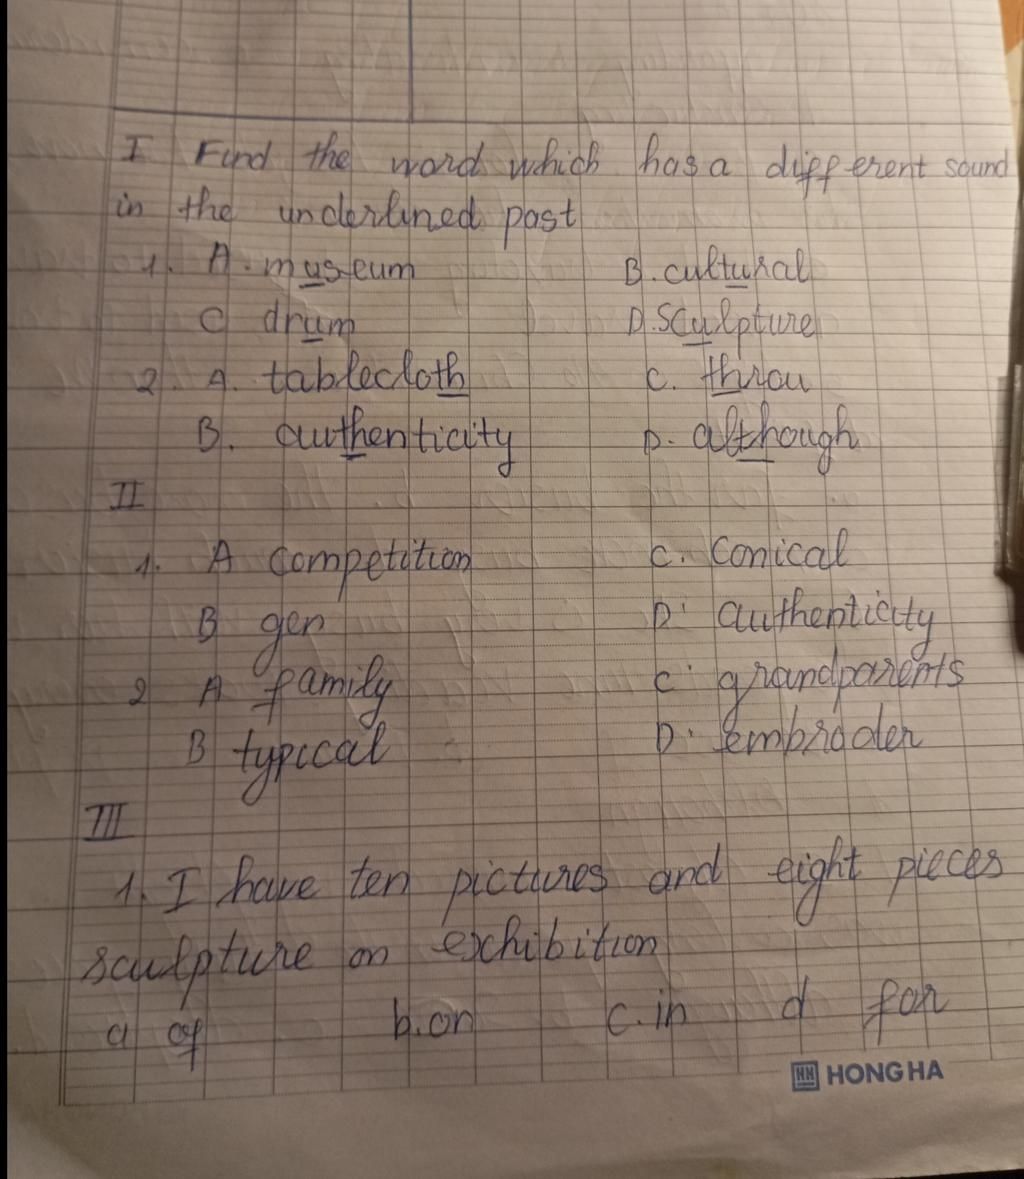 I Find the word which has a different sound
in the underlined past
1. A. museum B. cultural
C drum D. Sculpture
2. A. tablecloth C. throu
B. authenticity D. although
II
1. A competition C. conical
B gen D. authenticity
2 A family C. grandparents
B typical D. embroder
III
1. I have ten pictures and eight pieces
sculpture on exhibition
a of b. on c. in d for
HH HONG HA